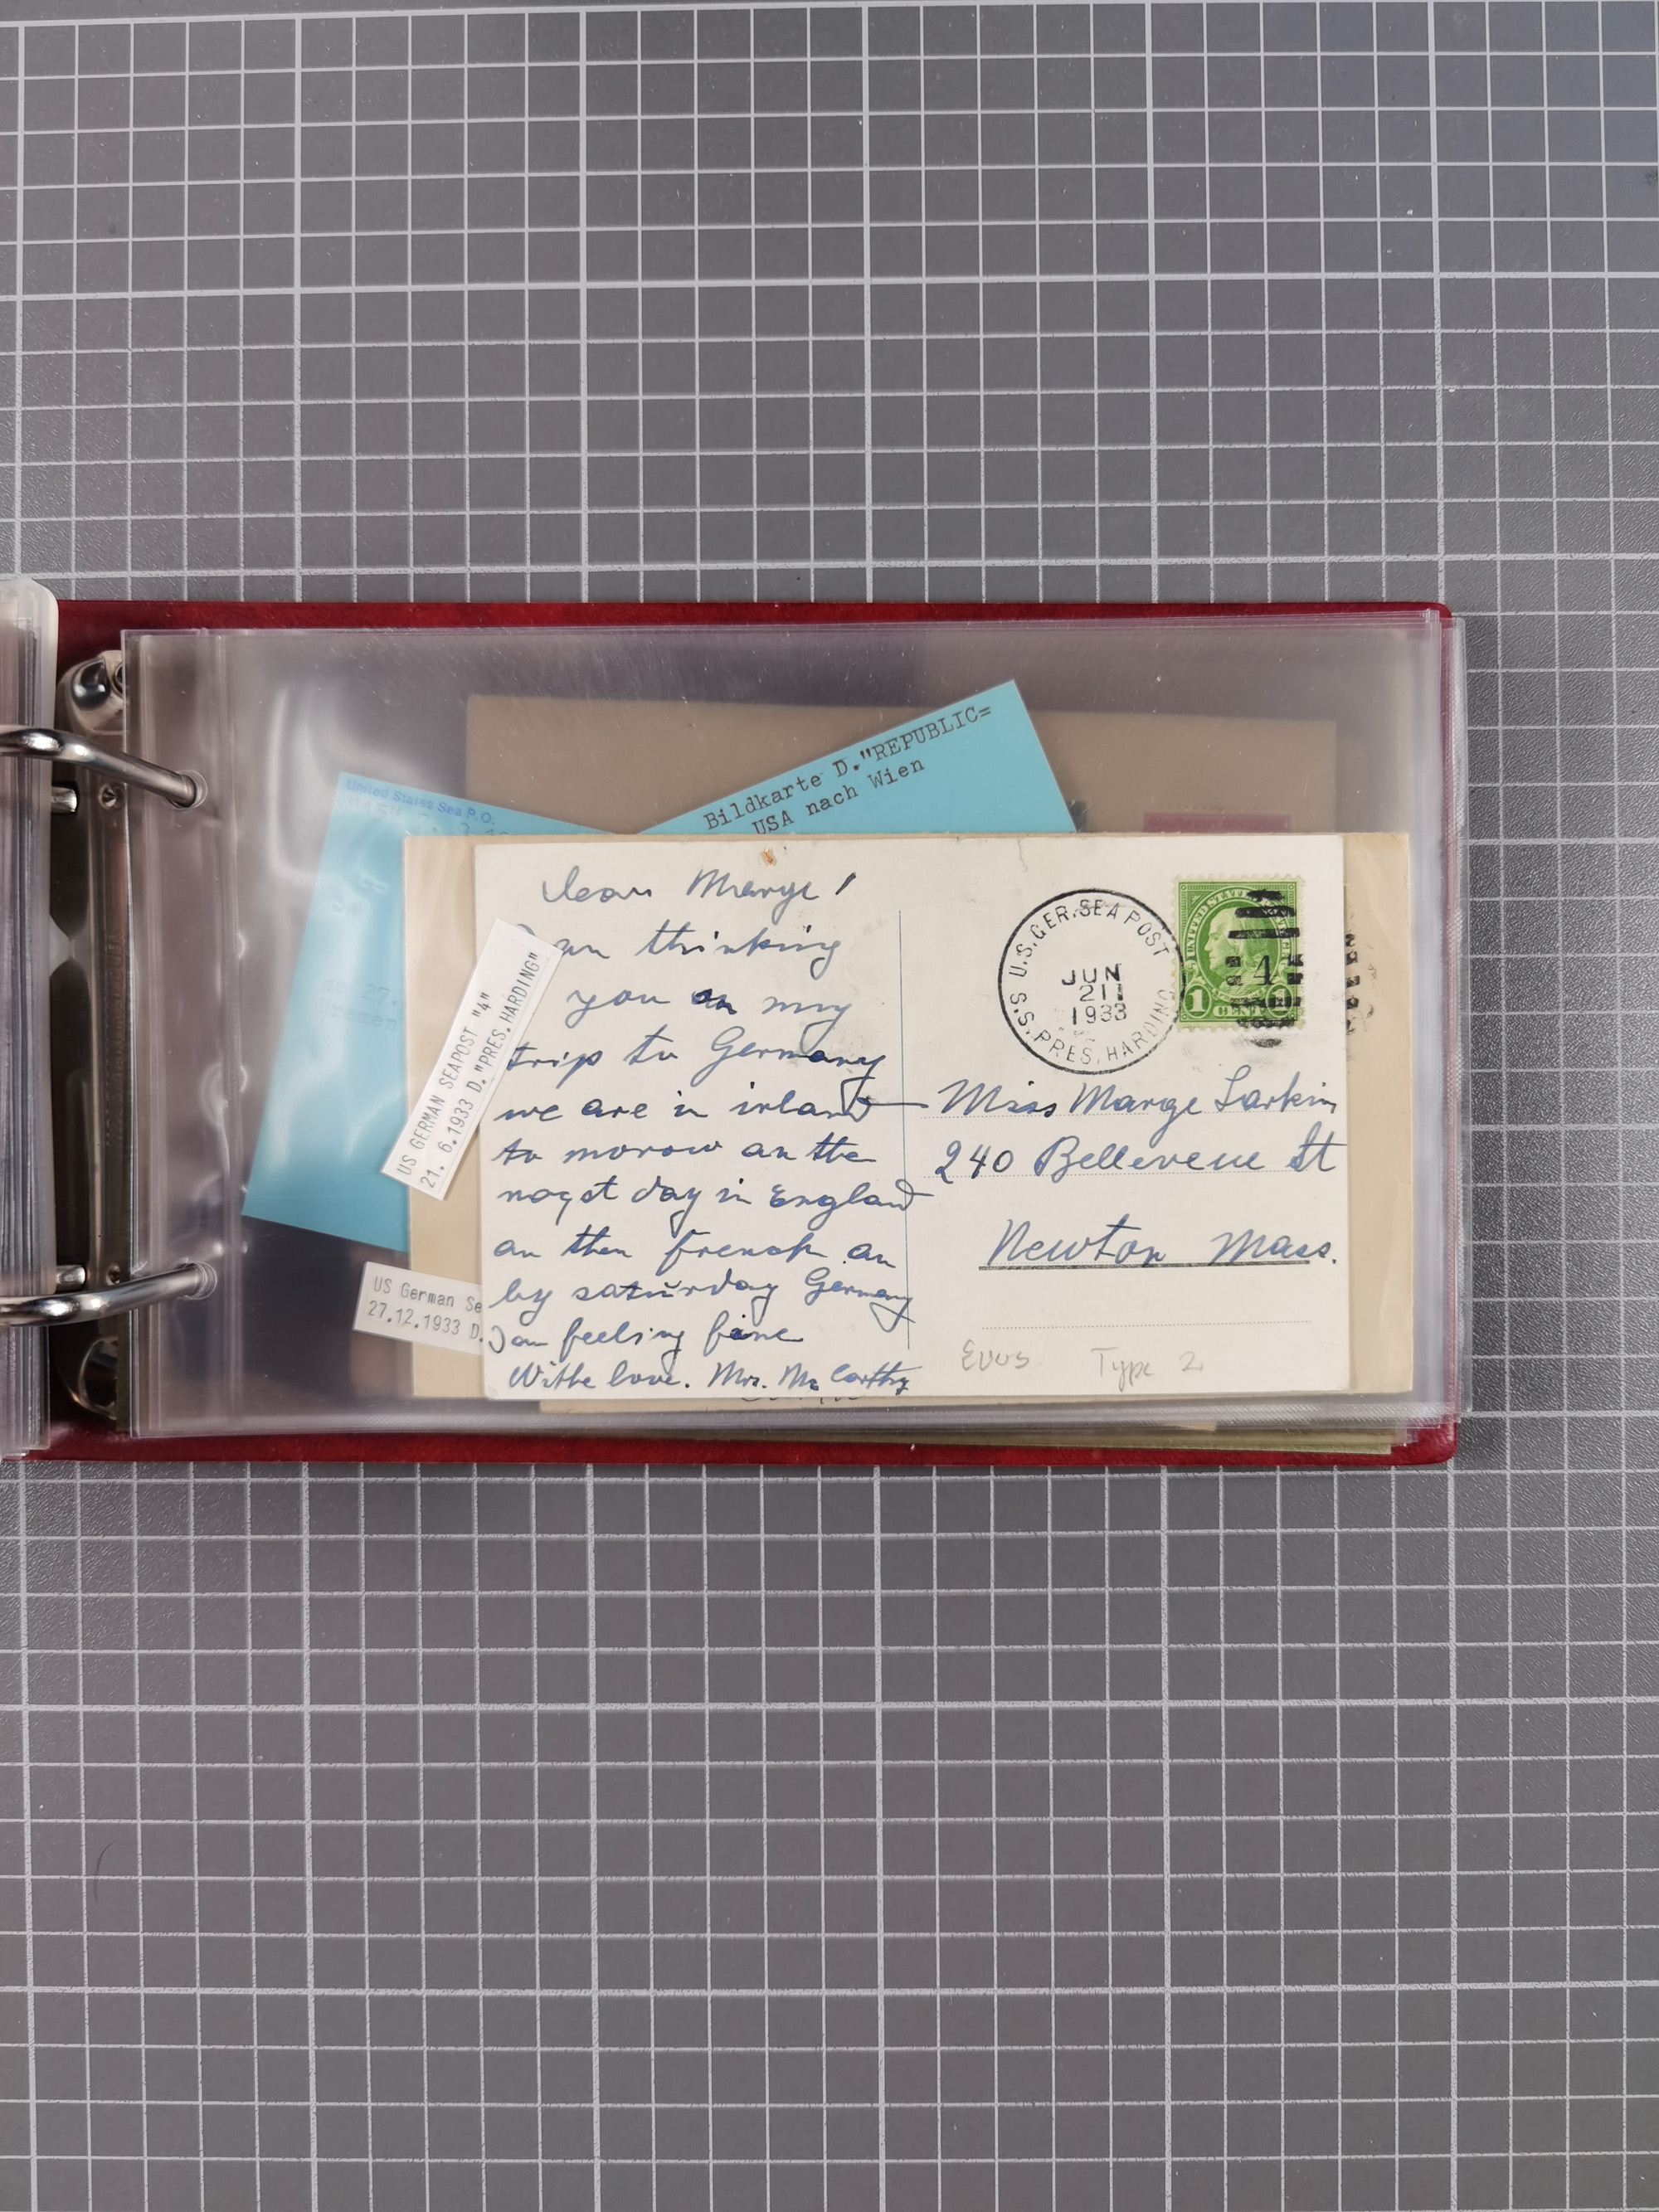 Bildkarte D."REPUBLIC=
USA nach Wien
United States Sea P.O.
US GERMAN SEAPOST "4"
21. 6.1933 D."PRES.HARDING"
US German Se
27.12.1933 D.
Dear Marge!
an thinking
you an my
trip to Germany
we are in irland
to morow an the
nogst day in England
an then french an
by saturday Germany
I an feeling fine
Withe love. Mrs. Mc Carthy
U.S.GER.SEA POST
JUN
21
1933
S.S.PRES.HARDING
UNITED STATES
1 CENT 1
4
Miss Marge Larkin
240 Bellevene St
Newton Mass.
Type 2